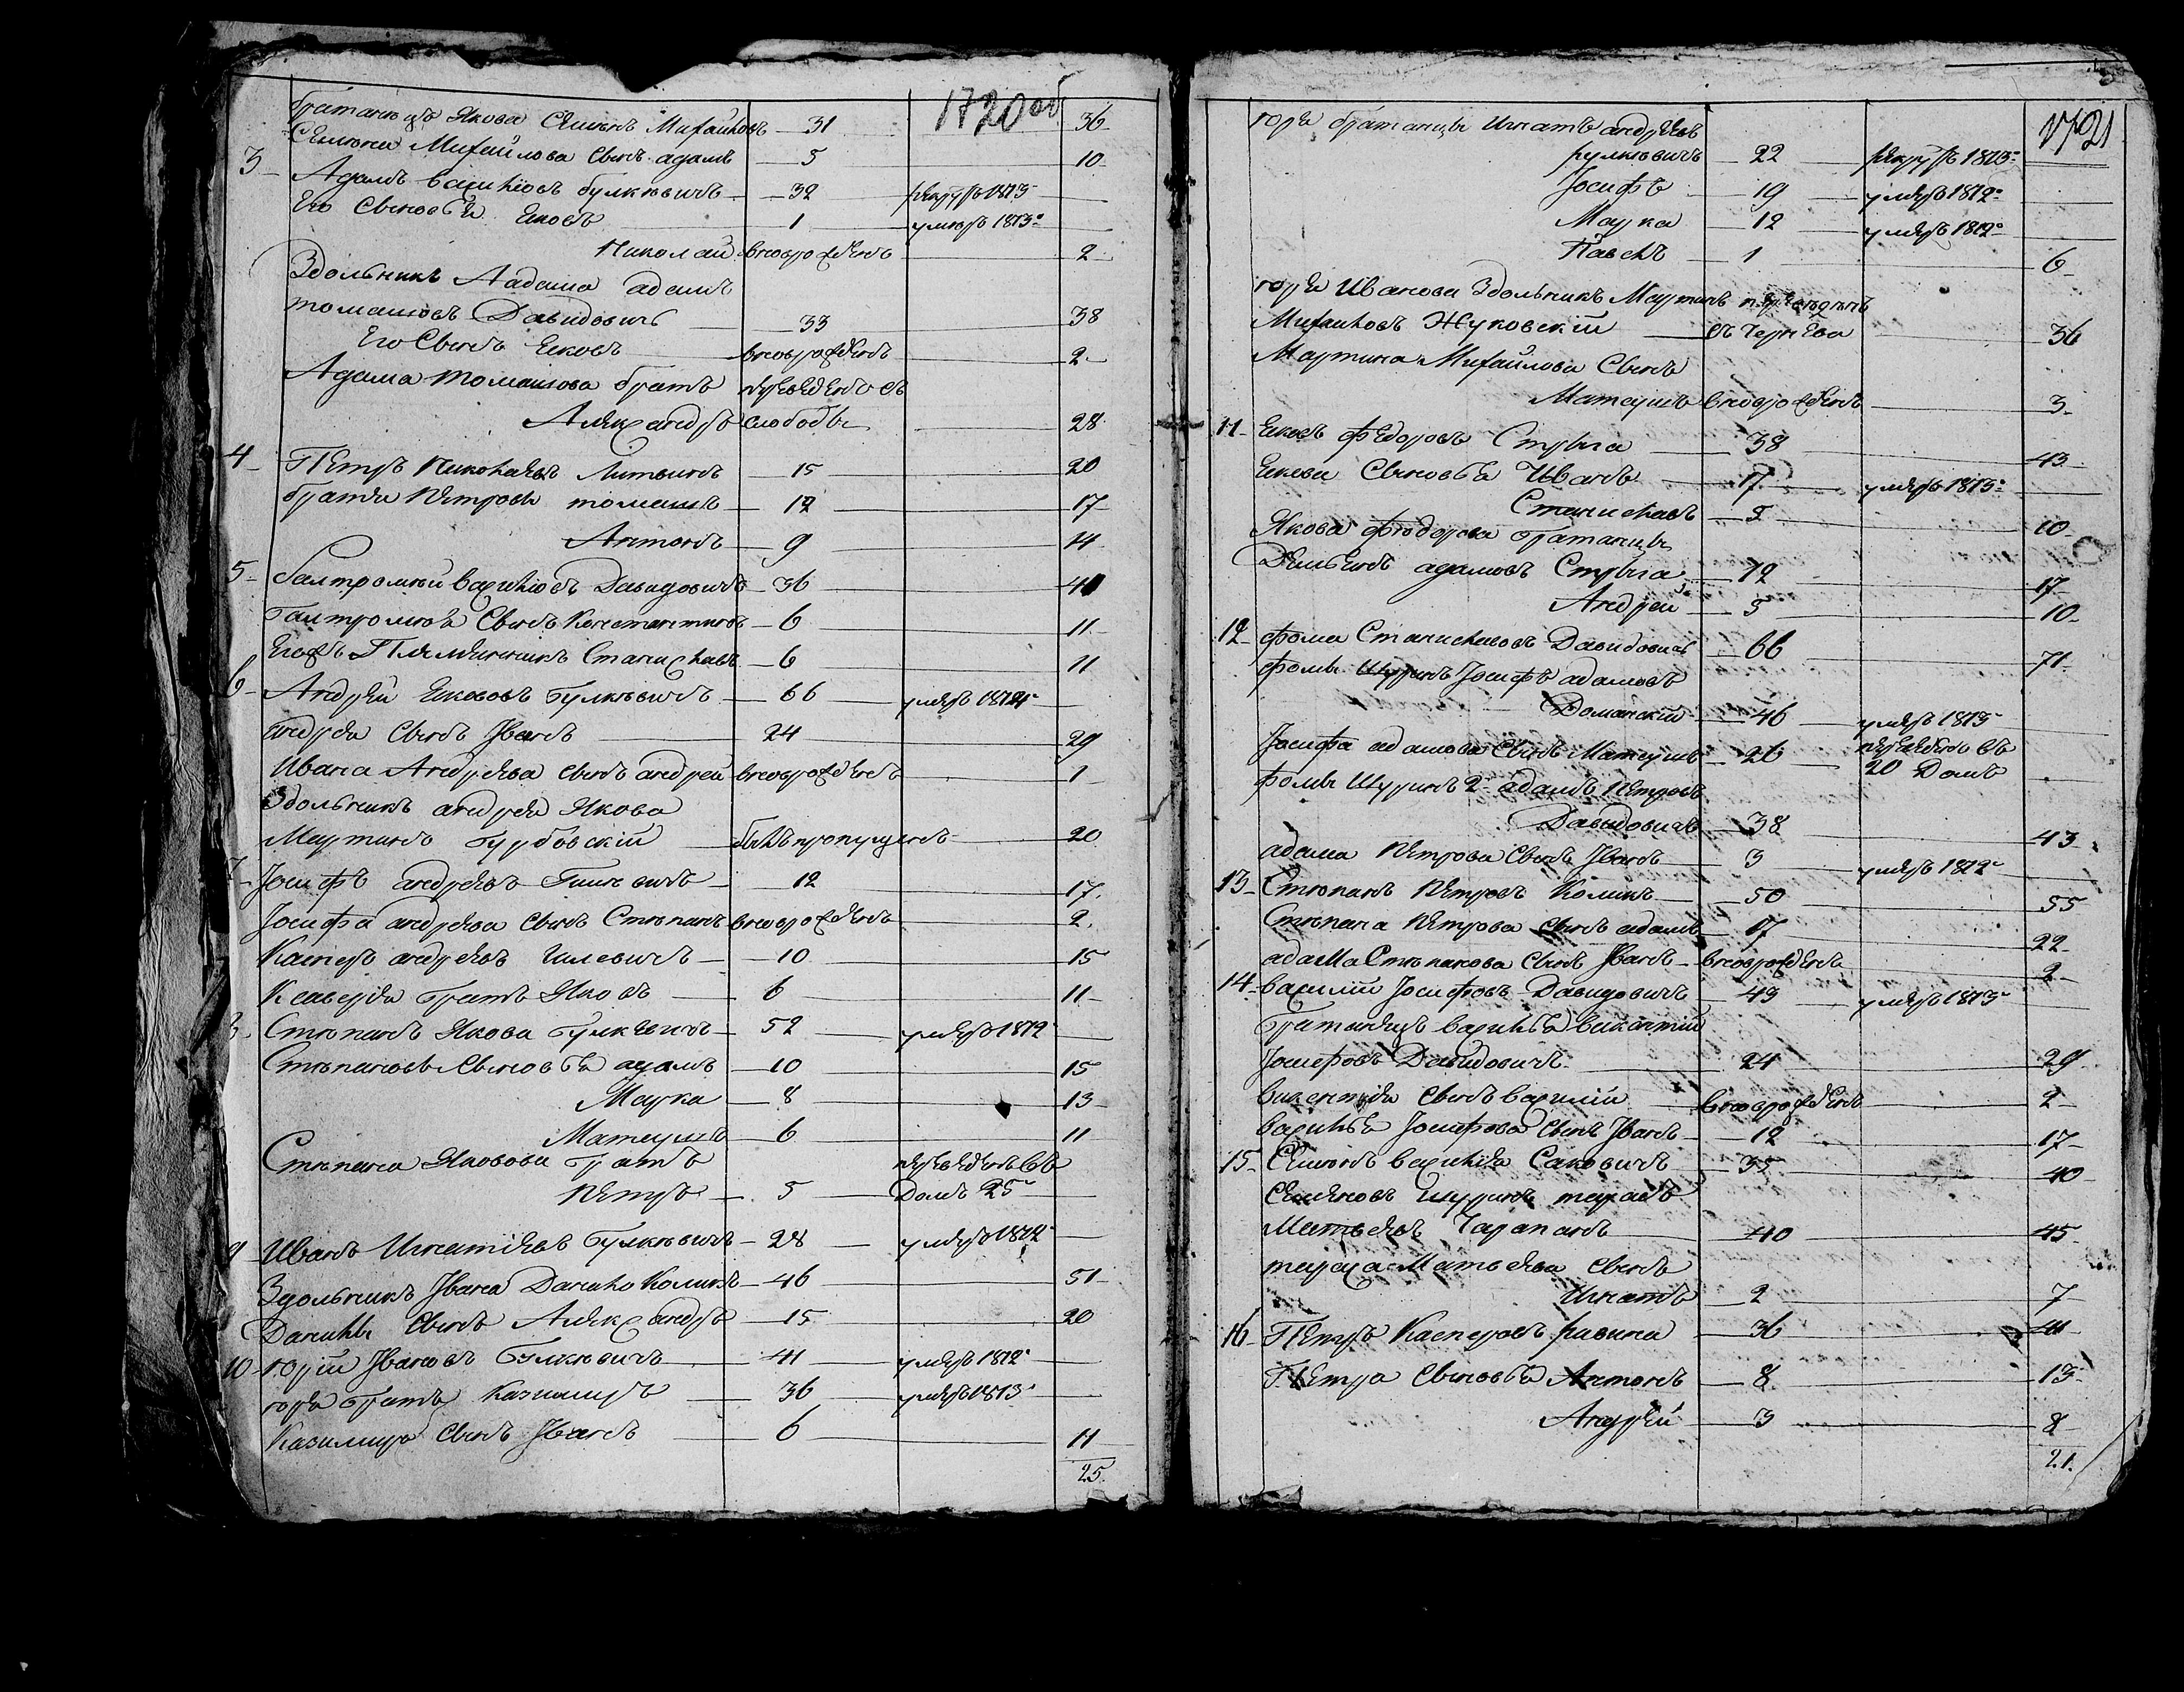 1720об
Братанецъ Якова Семенъ Михайловъ — 31 — 36
Семена Михайлова Сынъ адамъ — 5 — 10
3 Адамъ василіовъ Булкевичъ — 32 — рекрутъ 1813 —
Его Сыновья Яковъ — 1 — умеръ 1813 —
Николай — вновьрожденъ — 2
Здольникъ Аадама адамъ
томашовъ Давидовичъ — 33 — 38
Его Сынъ Яковъ — вновьрожденъ — 2
Адама томашова братъ — переведенъ съ
Александръ — слободы — 28
4 Петръ Николаевъ Литвинъ — 15 — 20
братья Петровы томашъ — 12 — 17
Антонъ — 9 — 14
5 Балтромей василіовъ Давидовичъ — 36 — 41
Балтромея Сынъ Константинъ — 6 — 11
Егожъ Племянникъ Станиславъ — 6 — 11
6 Андрей Якововъ Булкевичъ — 66 — умеръ 1812 —
андрея Сынъ Jванъ — 24 — 29
Ивана Андреева сынъ андрей — вновьрожденъ — 1
Здольникъ андрея Якова
Мартинъ Бурбовскій — былъ пропущенъ — 20
7 Jосифъ андреевъ — 12 — 17
Jосифа андреева сынъ Степанъ — вновьрожденъ — 2
Касперъ андреевъ — 10 — 15
братъ Яковъ — 6 — 11
Степанъ Якова Булкевичъ — 52 — умеръ 1812 —
Степановы Сыновья адамъ — 10 — 15
Марка — 8 — 13
Матеушъ — 6 — 11
Степана Яковова братъ — переведенъ въ
Петръ — 5 — Домъ 25 —
9 Иванъ Игнатіевъ Булкевичъ — 28 — умеръ 1812 —
Здольникъ Jвана Данило Коликъ — 46 — 51
Данилы Сынъ Александръ — 15 — 20
10 юрій Jвановъ Булкевичъ — 41 — умеръ 1812 —
юрія братъ Казимиръ — 36 — умеръ 1813 —
Казимира Сынъ Jванъ — 6 — 11
25.
1721
юрія братанцы Игнатъ андреевъ
Булкевичъ — 22 — рекрутъ 1813 —
Jосифъ — 19 — умеръ 1812 —
Марка — 12 — умеръ 1812 —
Павелъ — 1 — 6
юрія Иванова Здольникъ Мартинъ — переведенъ
Михаиловъ Жуковскій — — 36
Мартина Михайлова Сынъ
Матеушъ — вновьрожденъ — 3
11 Яковъ федоровъ Стрыга — 38 — 43
Якова Сыновья Иванъ — 17 — умеръ 1813 —
Станиславъ — 5 — 10
Якова федорова братанцы
адамовъ Стрыга — 12 — 17
Андрей — 5 — 10
12 фома Станиславовъ Давидовичъ — 66 — 71
фомы Шуринъ Jосифъ адамовъ
Доманскій — 46 — умеръ 1813
Jосифа адамова Сынъ Матеушъ — 26 — переведенъ въ
20 Домъ
фомы Шуринъ 2 адамъ Петровъ
Давыдовичъ — 38 — 43
адама Петрова Сынъ Jванъ — 3 — умеръ 1812
13 Степанъ Петровъ Коликъ — 50 — 55
Степана Петрова Сынъ адамъ — 17 — 22
адама Степанова Сынъ Jванъ — вновьрожденъ — 2
14 василій Jосифовъ Давидовичъ — 43 — умеръ 1813
Братанецъ василья викентій
Jосифовъ Давидовичъ — 24 — 29
викентія Сынъ василій — вновьрожденъ — 2
василья Jосифова Сынъ Jванъ — 12 — 17
15 Семіонъ василія Саковичъ — 35 — 40
Семеновъ шуринъ тарасъ
Матвеевъ Чарапанъ — 40 — 45
тараса Матвеева Сынъ
Игнатъ — 2 — 7
16 Петръ Касперовъ — 36 — 41
Петра Сыновья Антонъ — 8 — 13
Андрей — 3 — 8
21.